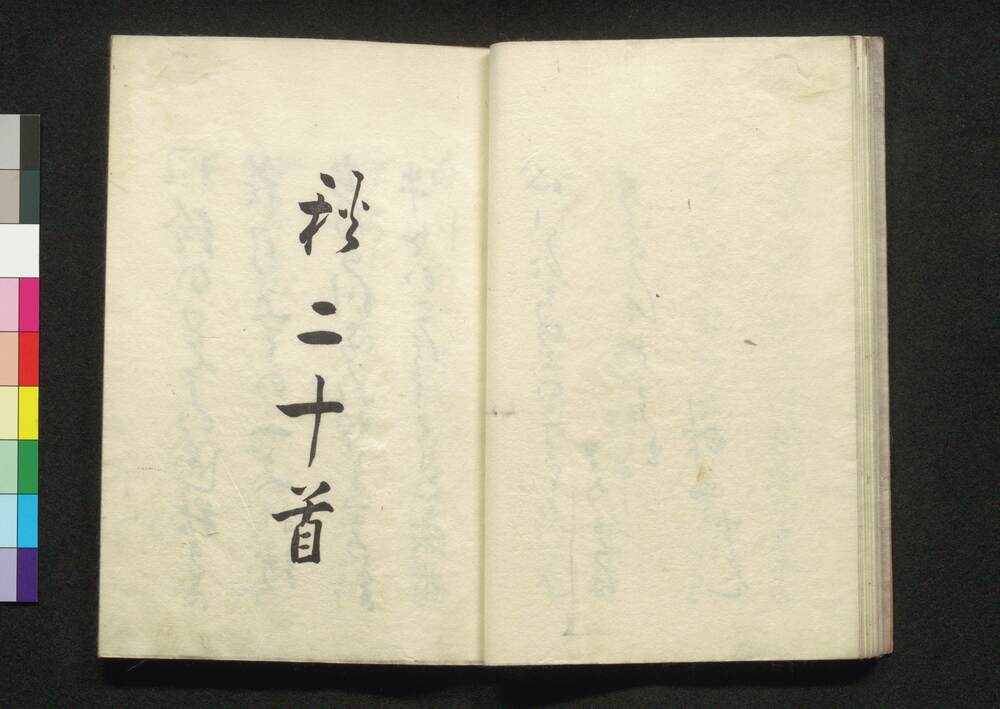 秋二十首